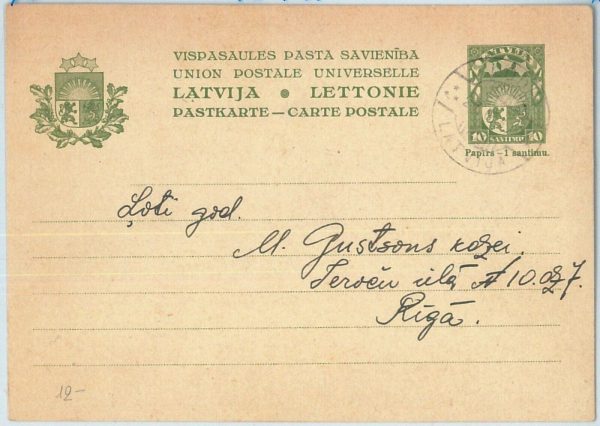 VISPASAULES PASTA SAVIENĪBA
UNION POSTALE UNIVERSELLE
LATVIJA • LETTONIE
PASTKARTE — CARTE POSTALE
LATVIJA
10 SANTĪMU 10
Papīrs – 1 santīmu.
LATVIJA
Ļoti god.
M. Gustsons kdzei.
Ieroču ielā № 10. dz 7.
Rīgā.
12-